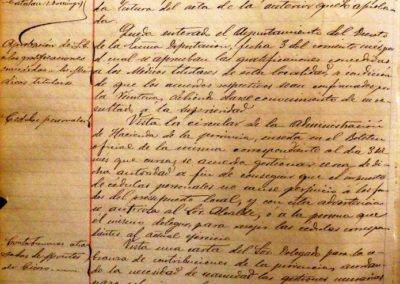 Catalan (Domingo)
la lectura del acta de la anterior que es aproba-
da
Queda enterado el Ayuntamiento del Decreto
de la Excma Diputacion, fecha 3 del corriente
el cual se aprueban las gratificaciones concedidas
a los Médicos titulares de esta localidad, a condicion
de que los acuerdos respectivos sean confirmados por la
Veintena, debiendo darse conocimiento de su re-
sultado, a la superioridad
Aprobacion de
las gratificaciones
concedidas a los Me-
dicos titulares
Cédulas personales
Vista la circular de la Administracion
de Hacienda de la provincia, inserta en el Boletin
oficial de la misma correspondiente al dia 3 del
mes que cursa, se acuerda gestionar cerca de di-
cha autoridad a fin de conseguir que el impuesto
de cédulas personales no cause perjuicio a los fon-
dos del presupuesto local, y con esta advertencia
se autoriza al Sor. Alcalde, o a la persona que
el mismo delegue, para sacar las cédulas correspon-
dientes al actual ejercicio
Contribuciones atra-
sadas de
Vista una carta del Sor. Delegado para la co-
branza de contribuciones de la provincia,
de la necesidad de reanudar las gestiones necesarias